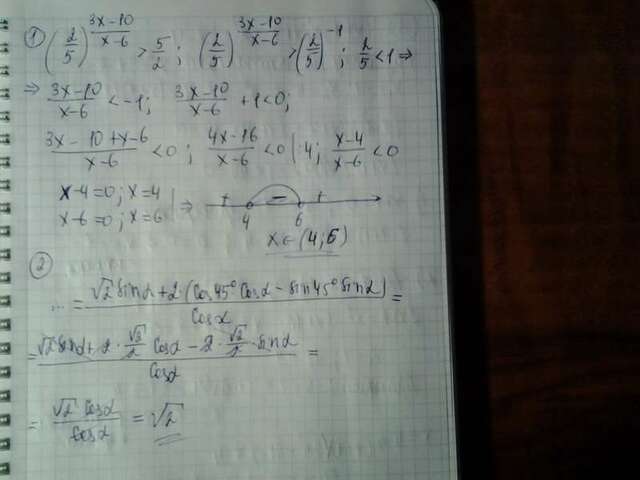 ① (2/5)^((3x-10)/(x-6)) > 5/2; (2/5)^((3x-10)/(x-6)) > (2/5)^(-1); 2/5 < 1 ⇒
⇒ (3x-10)/(x-6) < -1; (3x-10)/(x-6) + 1 < 0;
(3x-10+x-6)/(x-6) < 0; (4x-16)/(x-6) < 0 |:4; (x-4)/(x-6) < 0
x-4=0; x=4 | ⇒ + − +
x-6=0; x=6 4 6
x ∈ (4; 6)
②
... = (√2 sinα + 2·(cos45° cosα − sin45° sinα))/cosα =
= (√2 sinα + 2·√2/2 cosα − 2·√2/2·sinα)/cosα =
= (√2 cosα)/cosα = √2